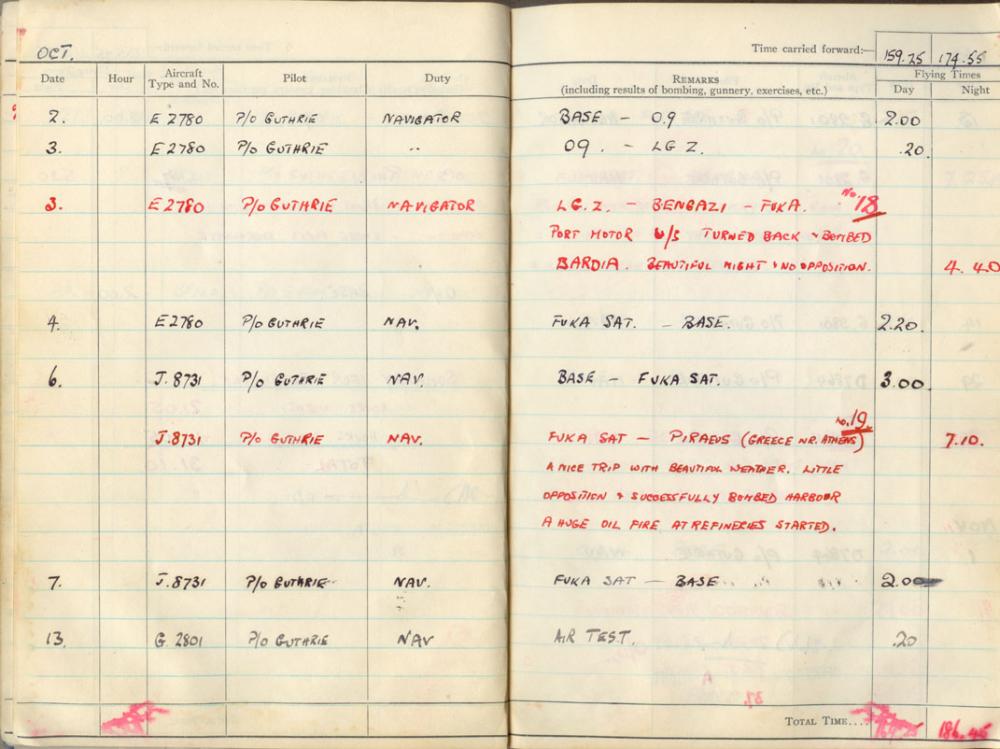 OCT.
Time carried forward:— 159.25 174.55
Date Hour Aircraft Type and No. Pilot Duty REMARKS (including results of bombing, gunnery, exercises, etc.) Flying Times Day Night
2. E 2780 P/o GUTHRIE NAVIGATOR BASE – 0.9 2.00
3. E 2780 P/o GUTHRIE " 09. – LG Z. .20
No 18
3. E 2780 P/o GUTHRIE NAVIGATOR LG. Z. – BENGAZI – FUKA.
PORT MOTOR U/S TURNED BACK & BOMBED
BARDIA. BEAUTIFUL NIGHT & NO OPPOSITION. 4.40
4. E 2780 P/o GUTHRIE NAV. FUKA SAT. – BASE. 2.20.
6. J. 8731 P/o GUTHRIE NAV. BASE – FUKA SAT. 3.00.
No. 19
J. 8731 P/o GUTHRIE NAV. FUKA SAT – PIRAEUS (GREECE NR. ATHENS) 7.10.
A NICE TRIP WITH BEAUTIFUL WEATHER. LITTLE
OPPOSITION & SUCCESSFULLY BOMBED HARBOUR
A HUGE OIL FIRE AT REFINERIES STARTED.
7. J. 8731 P/o GUTHRIE NAV. FUKA SAT – BASE 2.00
13. G. 2801 P/o GUTHRIE NAV AIR TEST. .20
TOTAL TIME.... 186.45